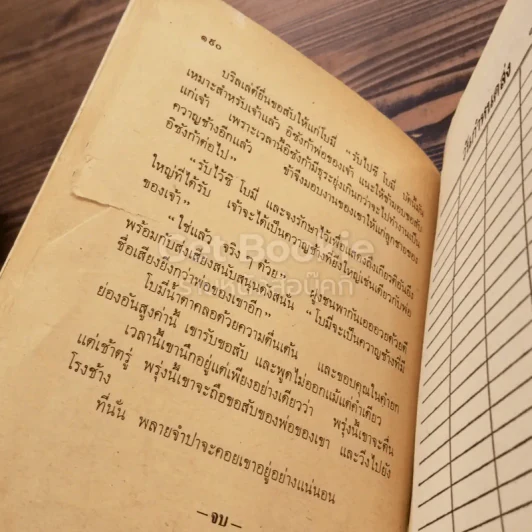 ๑๕๐
บริลเลต์ยื่นขอสับให้แก่โบมี่ “รับไปซิ โบมี่ บัดนี้มัน
เหมาะสำหรับเจ้าแล้ว อิซังก้าพ่อของเจ้า แนะให้ข้ามอบขอสับ
แก่เจ้า เพราะเวลานี้อิซังก้ามีธุระยุ่งเกินกว่าจะไปทำงานเป็น
ควาญช้างอีกแล้ว ข้าจึงมอบงานของเขาให้แก่ลูกชายของ
อิซังก้าต่อไป”
“รับไว้ซิ โบมี่ และจงรักษาไว้เพื่อแสดงถึงเกียรติอันยิ่ง
ใหญ่ที่ได้รับ เจ้าจะได้เป็นควาญช้างที่ยิ่งใหญ่เช่นเดียวกับพ่อ
ของเจ้า”
“ใช่แล้ว จริง ๆ ด้วย” ฝูงชนพากันเออออด้วยดี
พร้อมกับส่งเสียงสนับสนุนดังสนั่น “โบมี่จะเป็นควาญช้างที่มี
ชื่อเสียงยิ่งกว่าพ่อของเขาอีก”
โบมี่น้ำตาคลอด้วยความตื่นเต้น และขอบคุณในคำยก
ย่องอันสูงค่านี้ เขารับขอสับ และพูดไม่ออกแม้แต่คำเดียว
เวลานี้เขานึกอยู่แต่เพียงอย่างเดียวว่า พรุ่งนี้เขาจะตื่น
แต่เช้าตรู่ พรุ่งนี้เขาจะถือขอสับของพ่อของเขา และวิ่งไปยัง
โรงช้าง
ที่นั่น พลายจำปาจะคอยเขาอยู่อย่างแน่นอน
—จบ—
วันกำหนดส่ง
Cat Bookie
ร้านหนังสือบุ๊คกี้